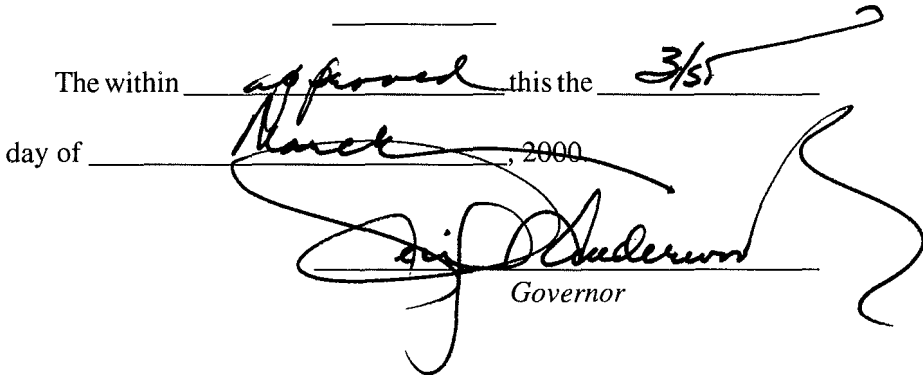 The within approved this the 31st
day of March, 2000
Underwood
Governor